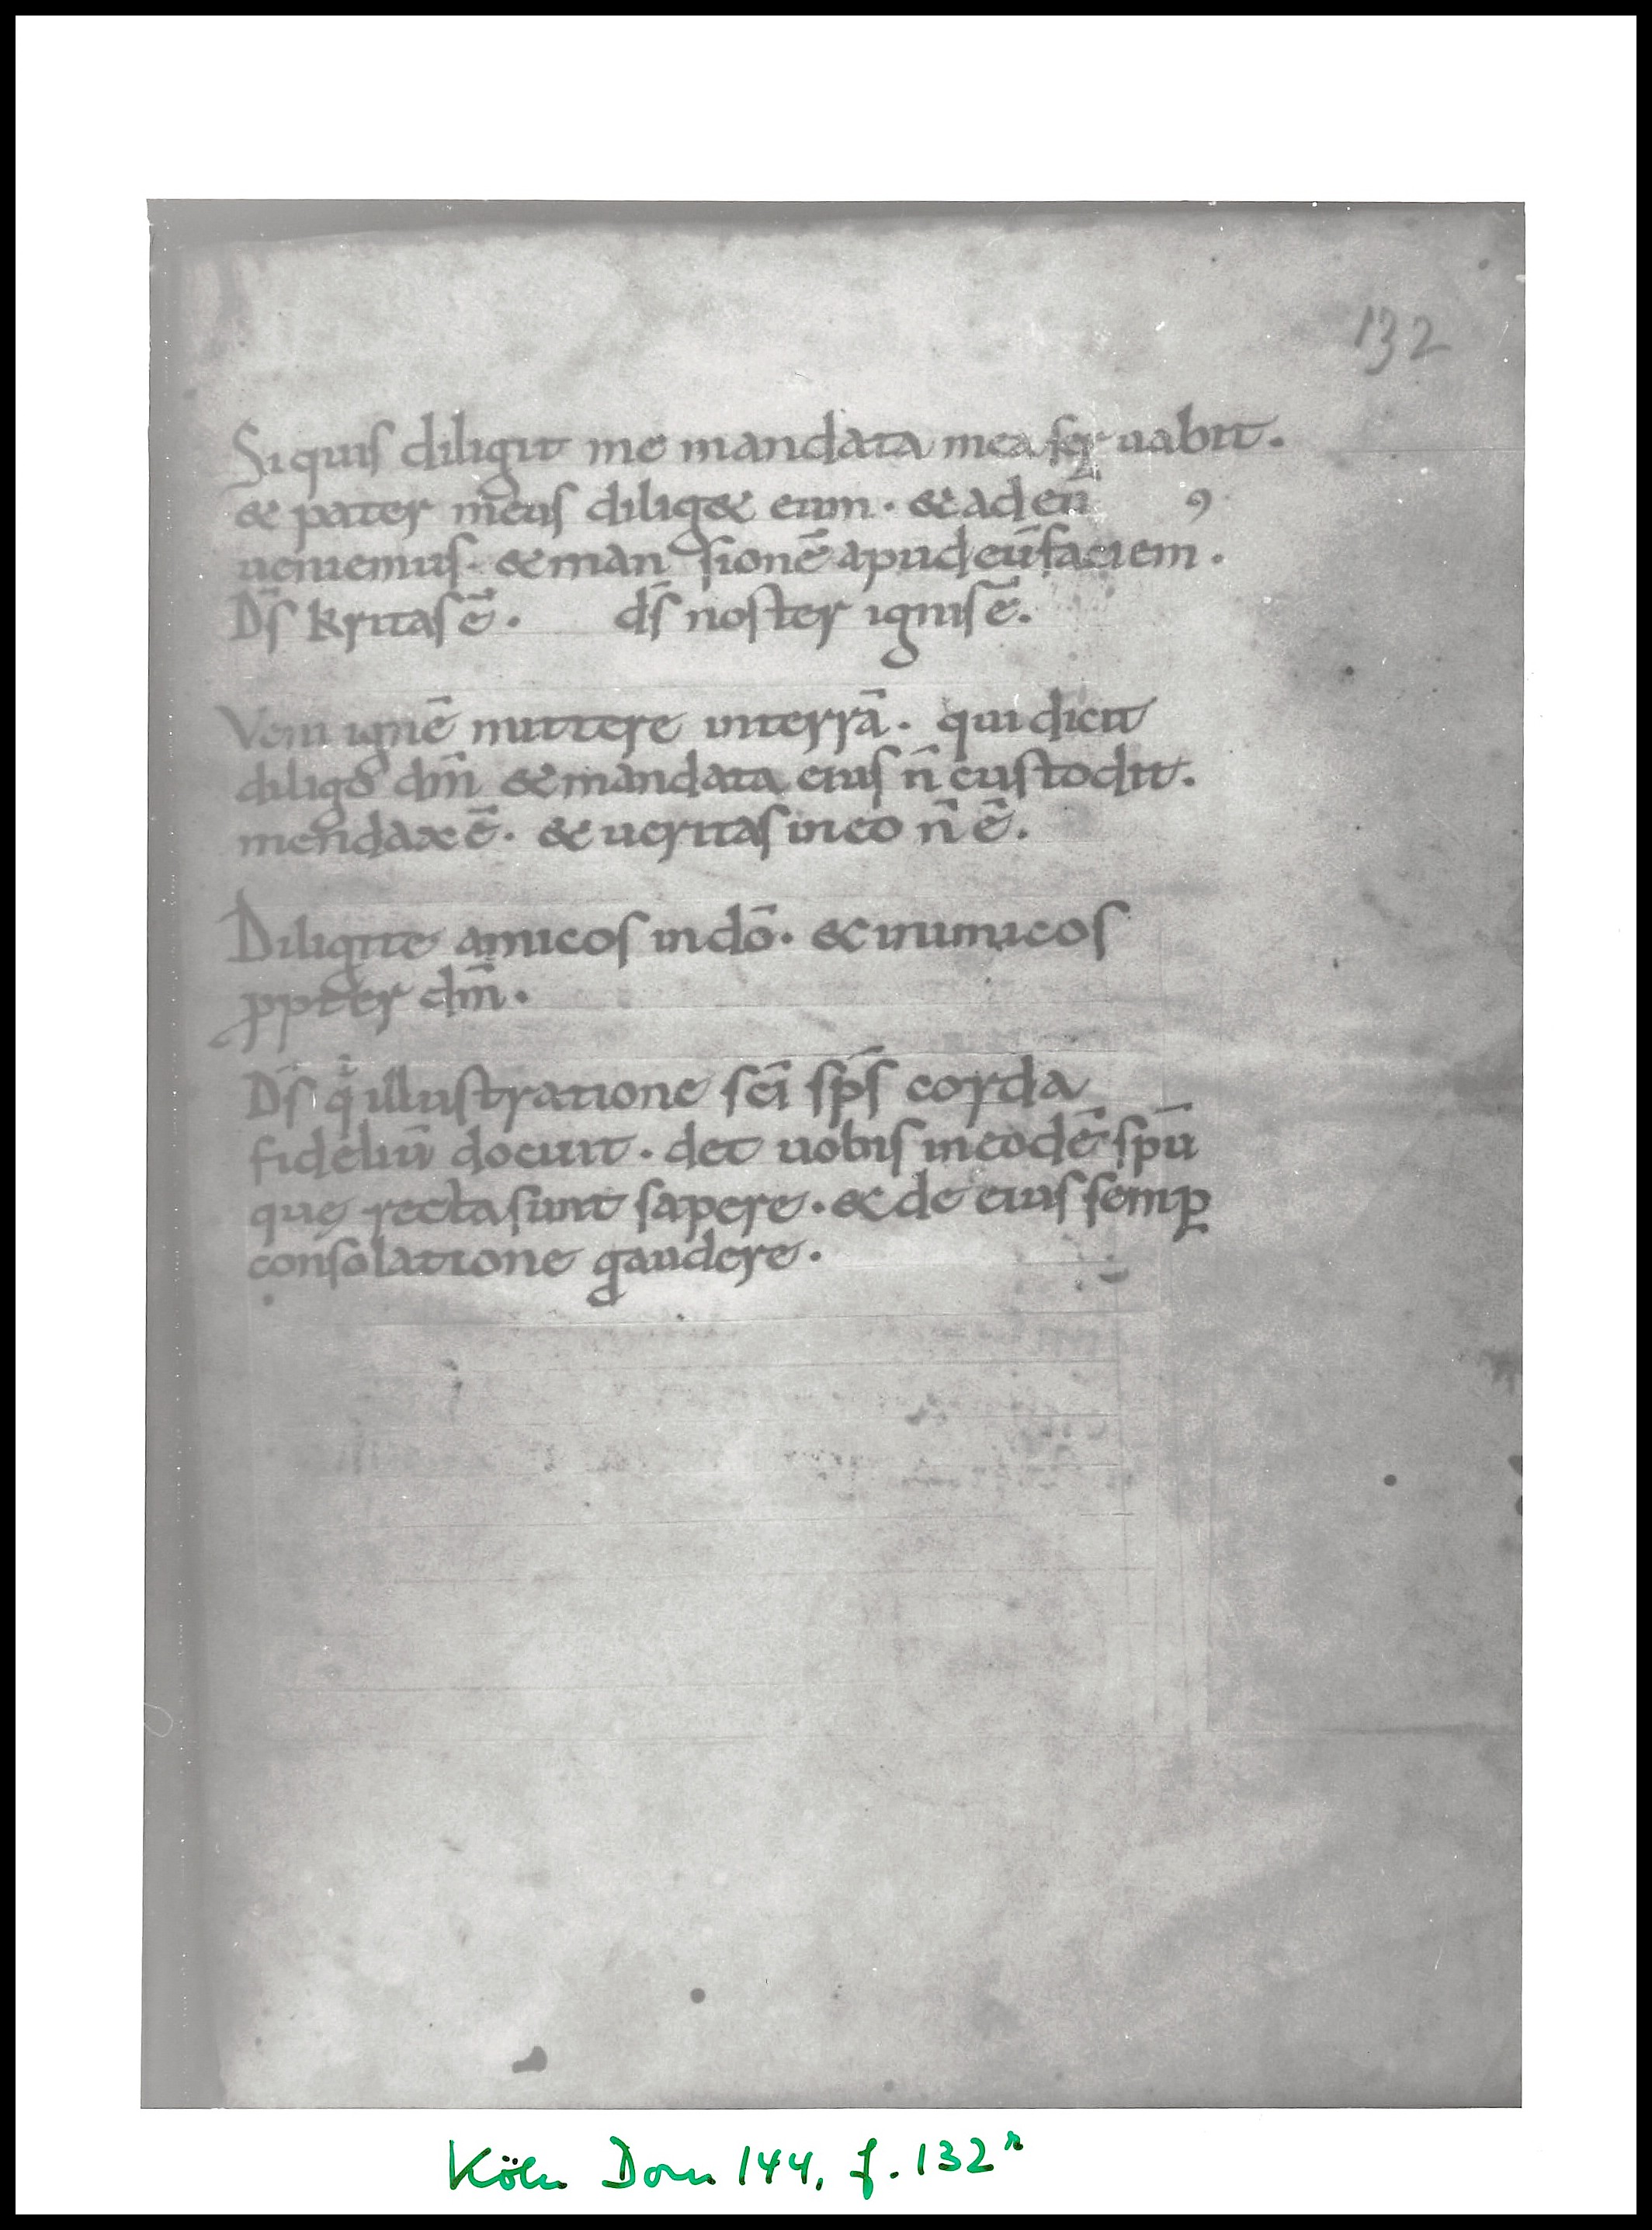 132
Si quis diligit me mandata mea seruabit.
& pater meus dilig& eum. & ad eū
ueniemus. & mansionē apud eū faciem⁹.
D̄s kritas ē. d̄s noster ignis ē.
Veni ignē mittere in terrā. qui dicit
diligo dm̄ & mandata eius n̄ custodit.
mendax ē. & ueritas in eo n̄ ē.
Diligite amicos in dō. & inimicos
ꝓpter dm̄.
D̄s qͥ illustratione sc̄i sp̄s corda
fideliū docuit. det uobis in eodē sp̄u
quę recta sunt sapere. & de eius semꝑ
consolatione gaudere.
Köln Dom 144, f. 132ʳ